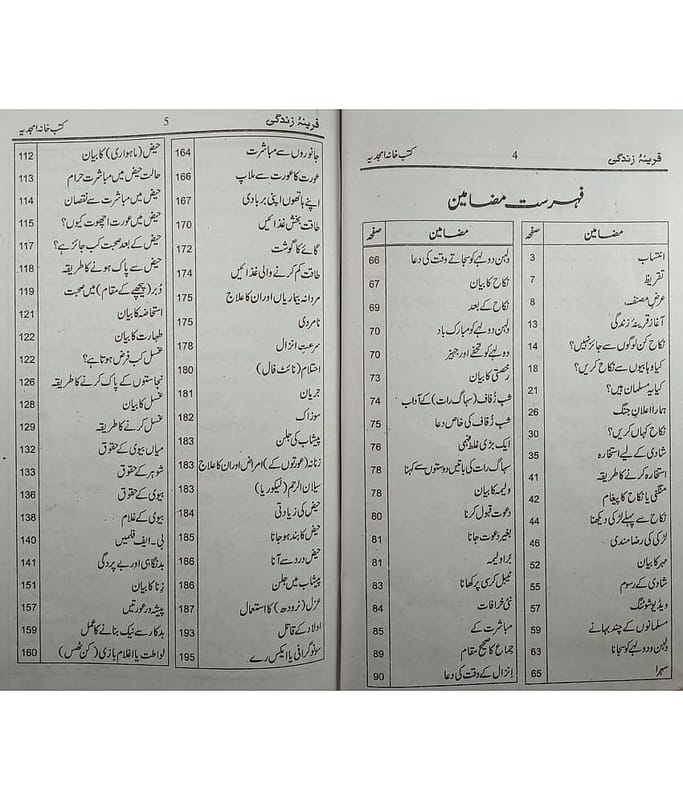 قرینۂ زندگی 4 کتب خانہ امجدیہ
فہرست مضامین
مضامین صفحہ
انتساب 3
تقریظ 7
عرض مصنف 8
آغاز قرینۂ زندگی 13
نکاح کن لوگوں سے جائز نہیں؟ 14
کیا وہابیوں سے نکاح کریں؟ 18
کیا یہ مسلمان ہیں؟ 21
ہمارا اعلان جنگ 26
نکاح کہاں کریں؟ 30
شادی کے لیے استخارہ 35
استخارہ کرنے کا طریقہ 41
منگنی یا نکاح کا پیغام 42
نکاح سے پہلے لڑکی دیکھنا 44
لڑکی کی رضامندی 46
مہر کا بیان 52
شادی کے رسوم 55
ویڈیو شوٹنگ 57
مسلمانوں کے چند بہانے 59
دلہن و دولہے کو سجانا 63
سہرا 65
مضامین صفحہ
دلہن دولہے کو سجاتے وقت کی دعا 66
نکاح کا بیان 67
نکاح کے بعد 69
دلہن دولہے کو مبارک باد 70
دولہے کو تحفے اور جہیز 70
رخصتی کا بیان 73
شب زفاف (سہاگ رات) کے آداب 74
شب زفاف کی خاص دعا 76
ایک بڑی غلط فہمی 77
سہاگ رات کی باتیں دوستوں سے کہنا 78
ولیمہ کا بیان 78
دعوت قبول کرنا 80
بغیر دعوت جانا 81
بُرا ولیمہ 81
ٹیبل کرسی پر کھانا 83
نئی خرافات 84
مباشرت کے 85
جماع کا صحیح مقام 89
اِنزال کے وقت کی دعا 90
قرینۂ زندگی 5 کتب خانہ امجدیہ
جانوروں سے مباشرت 164
عورت کا عورت سے ملاپ 166
اپنے ہاتھوں اپنی بربادی 167
طاقت بخش غذائیں 170
گائے کا گوشت 172
طاقت کم کرنے والی غذائیں 174
مردانہ بیماریاں اور ان کا علاج 175
نامردی 175
سرعتِ انزال 178
احتلام (نائٹ فال) 180
جریان 181
سوزاک 182
پیشاب کی جلن 183
زنانہ (عورتوں کے) امراض اور ان کا علاج 183
سیلان الرحم (لیکوریا) 183
حیض کی زیادتی 184
حیض کا بند ہو جانا 185
حیض درد سے آنا 186
پیشاب میں جلن 186
عزل (نرودھ) کا استعمال 187
اولاد کے قاتل 193
سونوگرافی یا ایکس رے 195
حیض (ماہواری) کا بیان 112
حالت حیض میں مباشرت حرام 113
حیض میں مباشرت سے نقصان 114
حیض میں عورت اچھوت کیوں؟ 115
حیض کے بعد صحبت کب جائز ہے؟ 117
حیض سے پاک ہونے کا طریقہ 118
دُبر (پیچھے کے مقام) میں صحبت 119
استحاضہ کا بیان 121
طہارت کا بیان 122
غسل کب فرض ہوتا ہے؟ 122
نجاستوں کے پاک کرنے کا طریقہ 126
غسل کا بیان 128
غسل کرنے کا طریقہ 129
میاں بیوی کے حقوق 132
شوہر کے حقوق 133
بیوی کے حقوق 136
بیوی کے غلام 138
بی۔ایف فلمیں 140
بدنگاہی اور بے پردگی 141
زنا کا بیان 151
پیشہ ور عورتیں 157
بدکار سے نیک بنانے کا عمل 159
لواطت یا اغلام بازی (کن ٹھس) 160